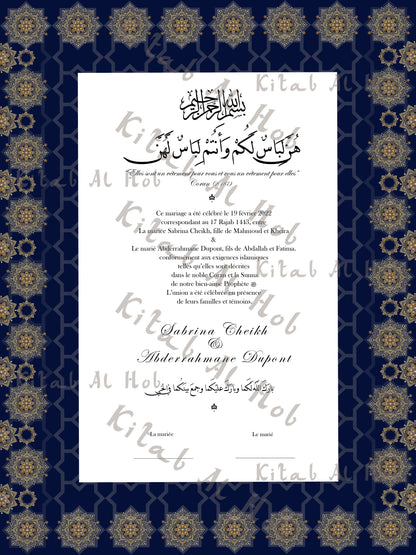 Kitab Al Hob
بسم الله الرحمن الرحيم
هُنَّ لِبَاسٌ لَكُمْ وَأَنْتُمْ لِبَاسٌ لَهُنَّ
"Elles sont un vêtement pour vous et vous un vêtement pour elles"
Coran
Ce mariage a été célébré le 19 février 2022
correspondant au 17 Rajab 1443, entre
La mariée Sabrina Cheikh, fille de Mahmoud et Kheira
&
Le marié Abderrahmane Dupont, fils de Abdallah et Fatima.
conformément aux exigences islamiques
telles qu'elles sont décrites
dans le noble Coran et la Sunna
de notre bien-aimé Prophète ﷺ
L'union a été célébrée en présence
de leurs familles et témoins.
Sabrina Cheikh
&
Abderrahmane Dupont
بارك الله لكما وبارك عليكما وجمع بينكما في الخير
La mariée Le marié
Kitab Al Hob